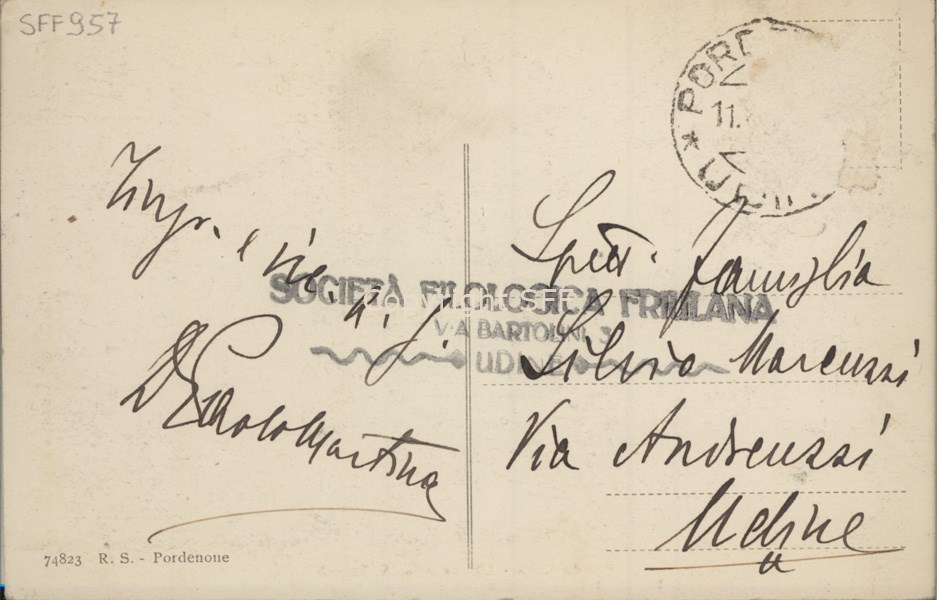 SFF957
PORD
11.
Ringr. e ric.
a. f.
Dr Paolo Martina
SOCIETÀ FILOLOGICA FRIULANA
VIA BARTOLINI, 3
UDINE
Spett. Famiglia
Silvio Marcuzzi
Via Andreuzzi
Udine
74823 R. S. - Pordenone